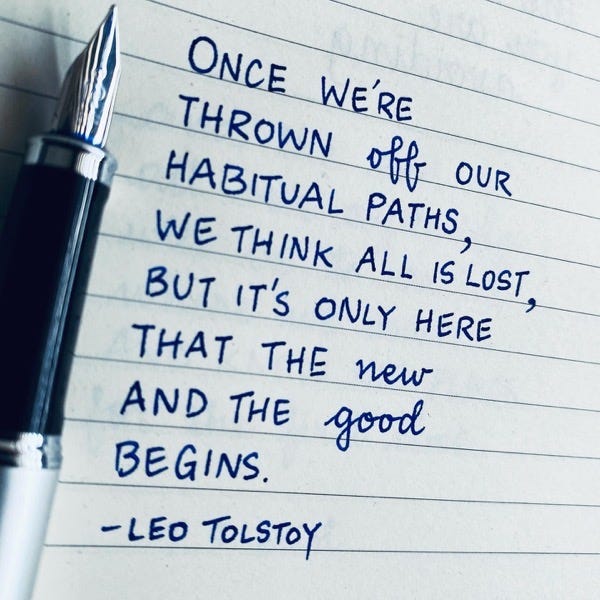 ONCE WE'RE
THROWN off OUR
HABITUAL PATHS,
WE THINK ALL IS LOST,
BUT IT'S ONLY HERE
THAT THE new
AND THE good
BEGINS.
-LEO TOLSTOY